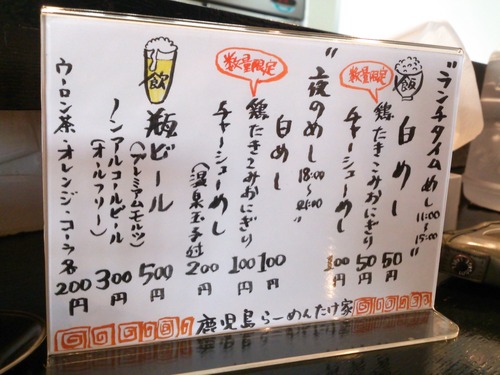 "ランチタイムめし 11:00〜15:00
飯
白めし 50円
数量限定
鶏たきこみおにぎり 50円
チャーシューめし 100円
"夜のめし 18:00〜21:00
白めし 100円
数量限定
鶏たきこみおにぎり 100円
チャーシューめし 200円
(温泉玉子付)
飲
瓶ビール 500円
(プレミアムモルツ)
ノンアルコールビール 300円
(オールフリー)
ウーロン茶・オレンジ・コーラ各 200円
鹿児島らーめんたけ家